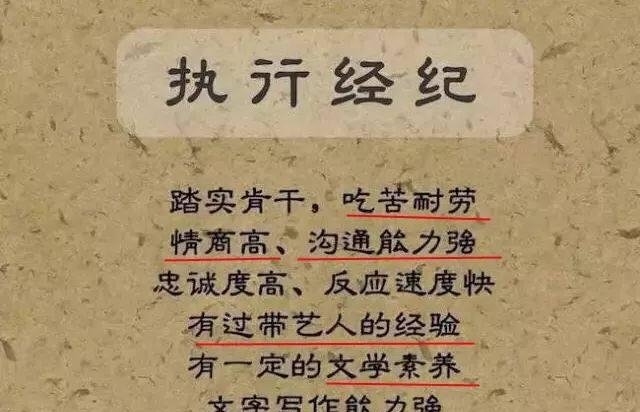 执行经纪
踏实肯干，吃苦耐劳
情商高、沟通能力强
忠诚度高、反应速度快
有过带艺人的经验
有一定的文学素养
文字写作能力强